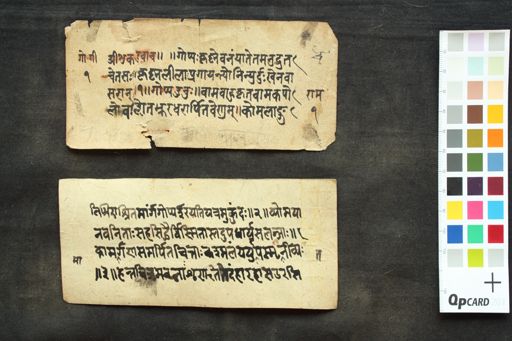 गोगी श्रीशुकउवाच ॥ ॥ गोप्यः कृष्णेवनंयातेतमनुद्रुत
१ चेतसः॥ कृष्णलीलाप्रगायन्त्योनिन्युर्दुःखेनवा
सरान् ॥१॥ गोप्यऊचुः॥ वामबाहुकृतवामकपो राम
लोवल्गितभ्रूरधरार्पितवेणुम्॥ कोमलाङ्गु १
लिभिराश्रितमार्गंगोप्यईरयतियत्रमुकुंदः॥२॥ व्योमया
नवनिताःसहसिद्धैर्विस्मितास्तदुपधार्यसलज्जाः॥
काममार्गणसमर्पितचित्ताःकश्मलंययुरपस्मृतनीव्यः
॥३॥ हन्तचित्रमबलाःशृणुतेदंहारहासउरसि
QPCARD